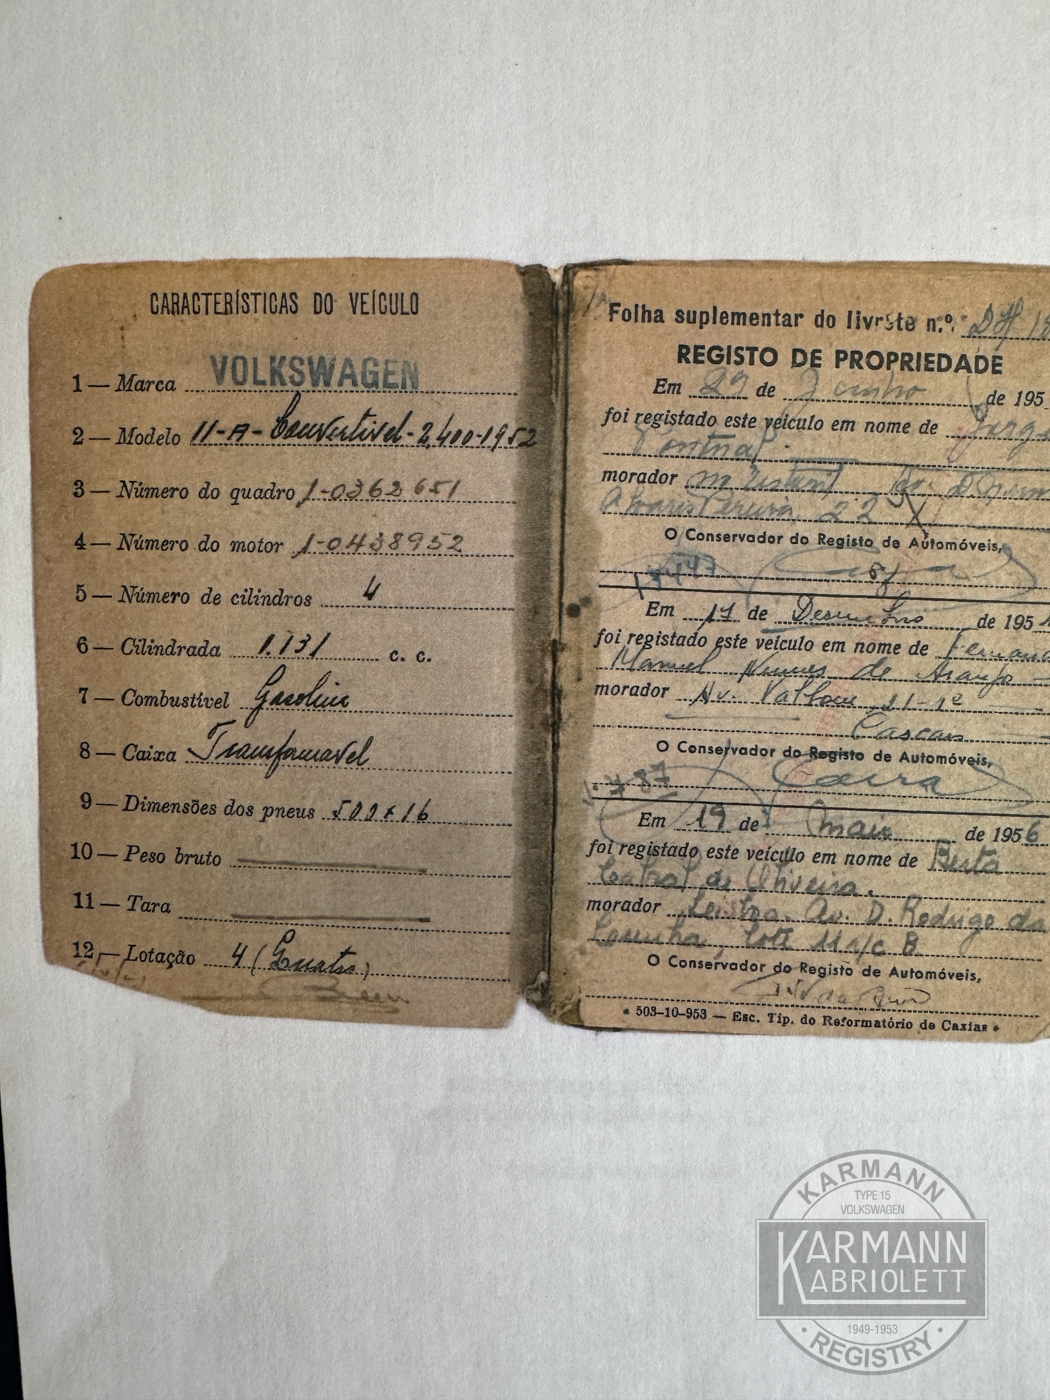 CARACTERÍSTICAS DO VEÍCULO
1 — Marca VOLKSWAGEN
2 — Modelo 11-A-Convertivel-2,400-1952
3 — Número do quadro 1-0362651
4 — Número do motor 1-0438952
5 — Número de cilindros 4
6 — Cilindrada 1.131 c. c.
7 — Combustível Gasolina
8 — Caixa Transformavel
9 — Dimensões dos pneus 500x16
10 — Peso bruto
11 — Tara
12 — Lotação 4 (Quatro)
Folha suplementar do livrete n.º
REGISTO DE PROPRIEDADE
Em 29 de Junho de 195
foi registado este veículo em nome de Jorge
morador
Alvares Pereira, 22
O Conservador do Registo de Automóveis,
Em 17 de Dezembro de 195
foi registado este veículo em nome de Fernando
Manuel Nunes de Araujo
morador Av. Valbom 21-1º
Cascais
O Conservador do Registo de Automóveis,
Em 19 de Maio de 1956
foi registado este veículo em nome de Berta
Cabral de Oliveira.
morador Lisboa. Av. D. Rodrigo da
Cunha, lote 11 r/c B.
O Conservador do Registo de Automóveis,
• 503-10-953 — Esc. Tip. do Reformatório de Caxias •
KARMANN
TYPE 15
VOLKSWAGEN
KARMANN
KABRIOLETT
1949-1953
• REGISTRY •